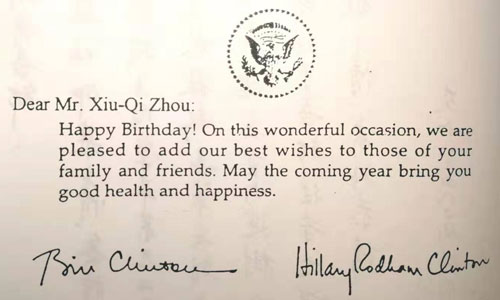 Dear Mr. Xiu-Qi Zhou:
Happy Birthday! On this wonderful occasion, we are
pleased to add our best wishes to those of your
family and friends. May the coming year bring you
good health and happiness.
Bill Clinton Hillary Rodham Clinton